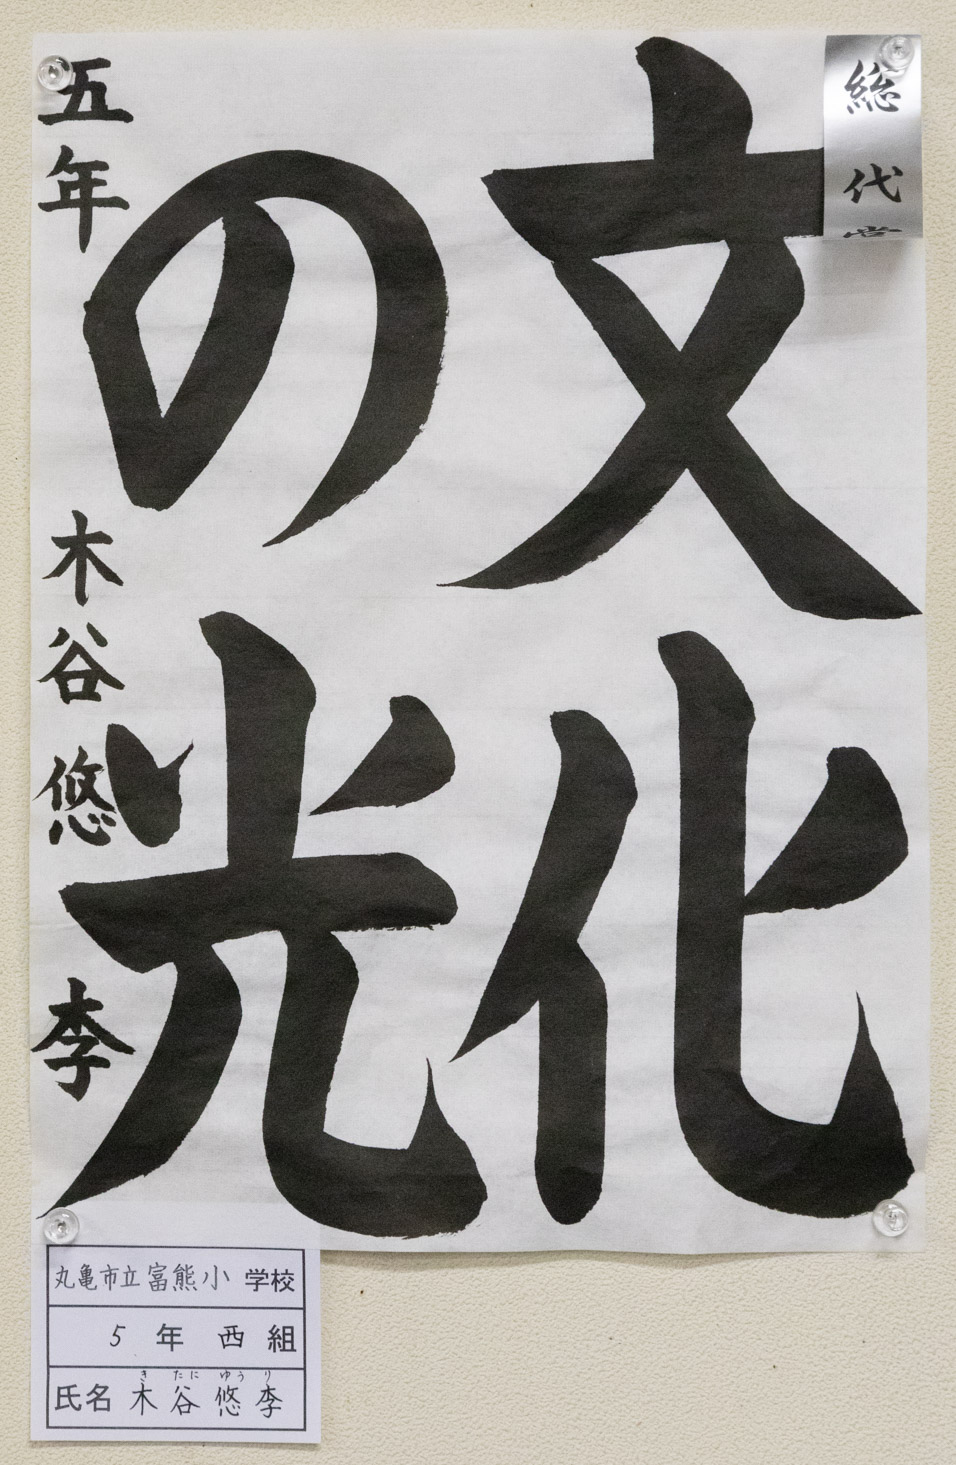 総代賞
文化
の光
五年 木谷悠李
丸亀市立富熊小学校
5年 西組
き たに ゆう り
氏名 木谷悠李